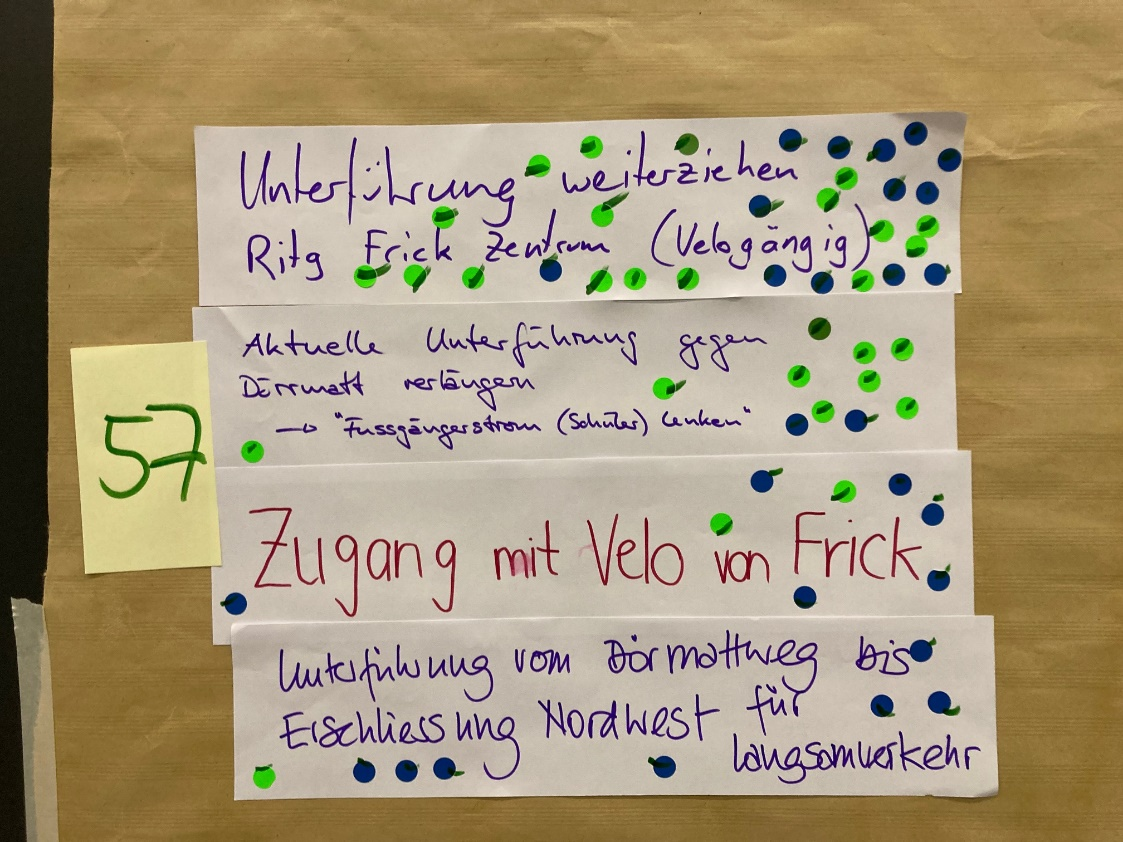 Unterführung weiterziehen
Ritg Frick Zentrum (Velogängig)
Aktuelle Unterführung gegen
Dörrmatt verlängern
→ "Fussgängerstrom (Schüler) lenken"
57
Zugang mit Velo von Frick
Unterführung vom Dörmattweg bis
Erschliessung Nordwest für
Langsamverkehr